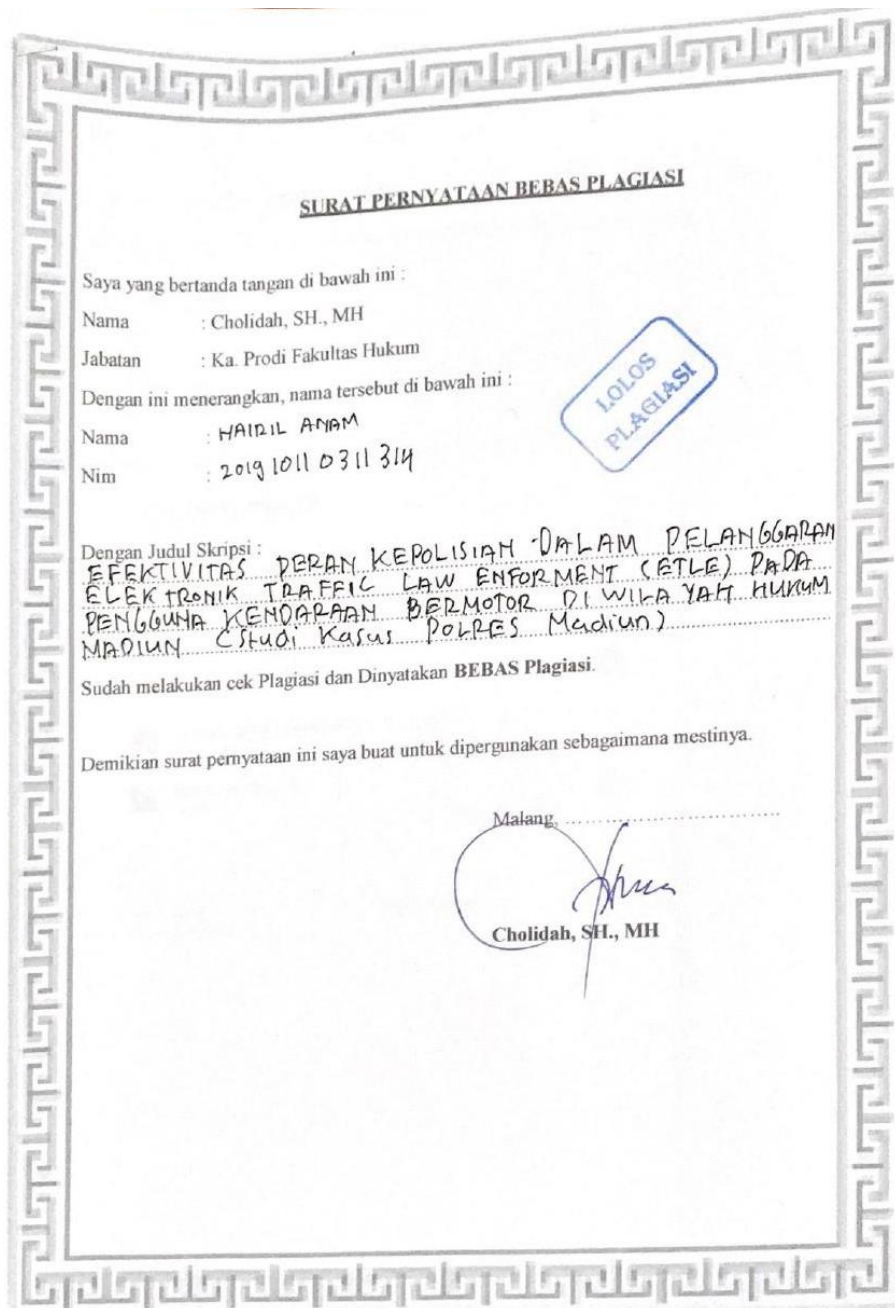 SURAT PERNYATAAN BEBAS PLAGIASI
Saya yang bertanda tangan di bawah ini :
Nama : Cholidah, SH., MH
Jabatan : Ka. Prodi Fakultas Hukum
Dengan ini menerangkan, nama tersebut di bawah ini :
Nama : HAIRIL ANAM
Nim : 201910110311314
LOLOS
PLAGIASI
Dengan Judul Skripsi :
EFEKTIVITAS PERAN KEPOLISIAN DALAM PELANGGARAN
ELEKTRONIK TRAFFIC LAW ENFORMENT (ETLE) PADA
PENGGUNA KENDARAAN BERMOTOR DI WILAYAH HUKUM
MADIUN (Studi Kasus POLRES Madiun)
Sudah melakukan cek Plagiasi dan Dinyatakan BEBAS Plagiasi.
Demikian surat pernyataan ini saya buat untuk dipergunakan sebagaimana mestinya.
Malang, ........................................
Cholidah, SH., MH